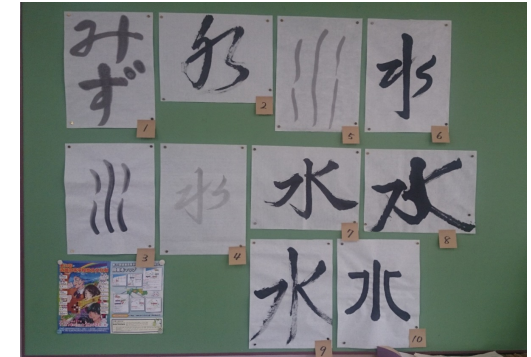 みず
1
水
2
水
5
水
6
水
3
水
4
水
7
水
8
水
9
水
10